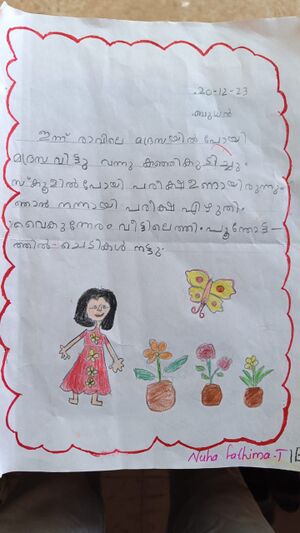 20-12-23
ബുധൻ
ഇന്ന് രാവിലെ മദ്രസയിൽ പോയി
മദ്രസ വിട്ടു വന്നു കഞ്ഞികുടിച്ചു.
സ്കൂളിൽപോയി പരീക്ഷ ഉണായിരുന്നു.
ഞാൻ നന്നായി പരീക്ഷ എഴുതി.
വൈകുന്നേരം വീട്ടിലെത്തി. പൂന്തോട്ട-
ത്തിൽ ചെടികൾ നട്ടു.
Nuha fathima.T